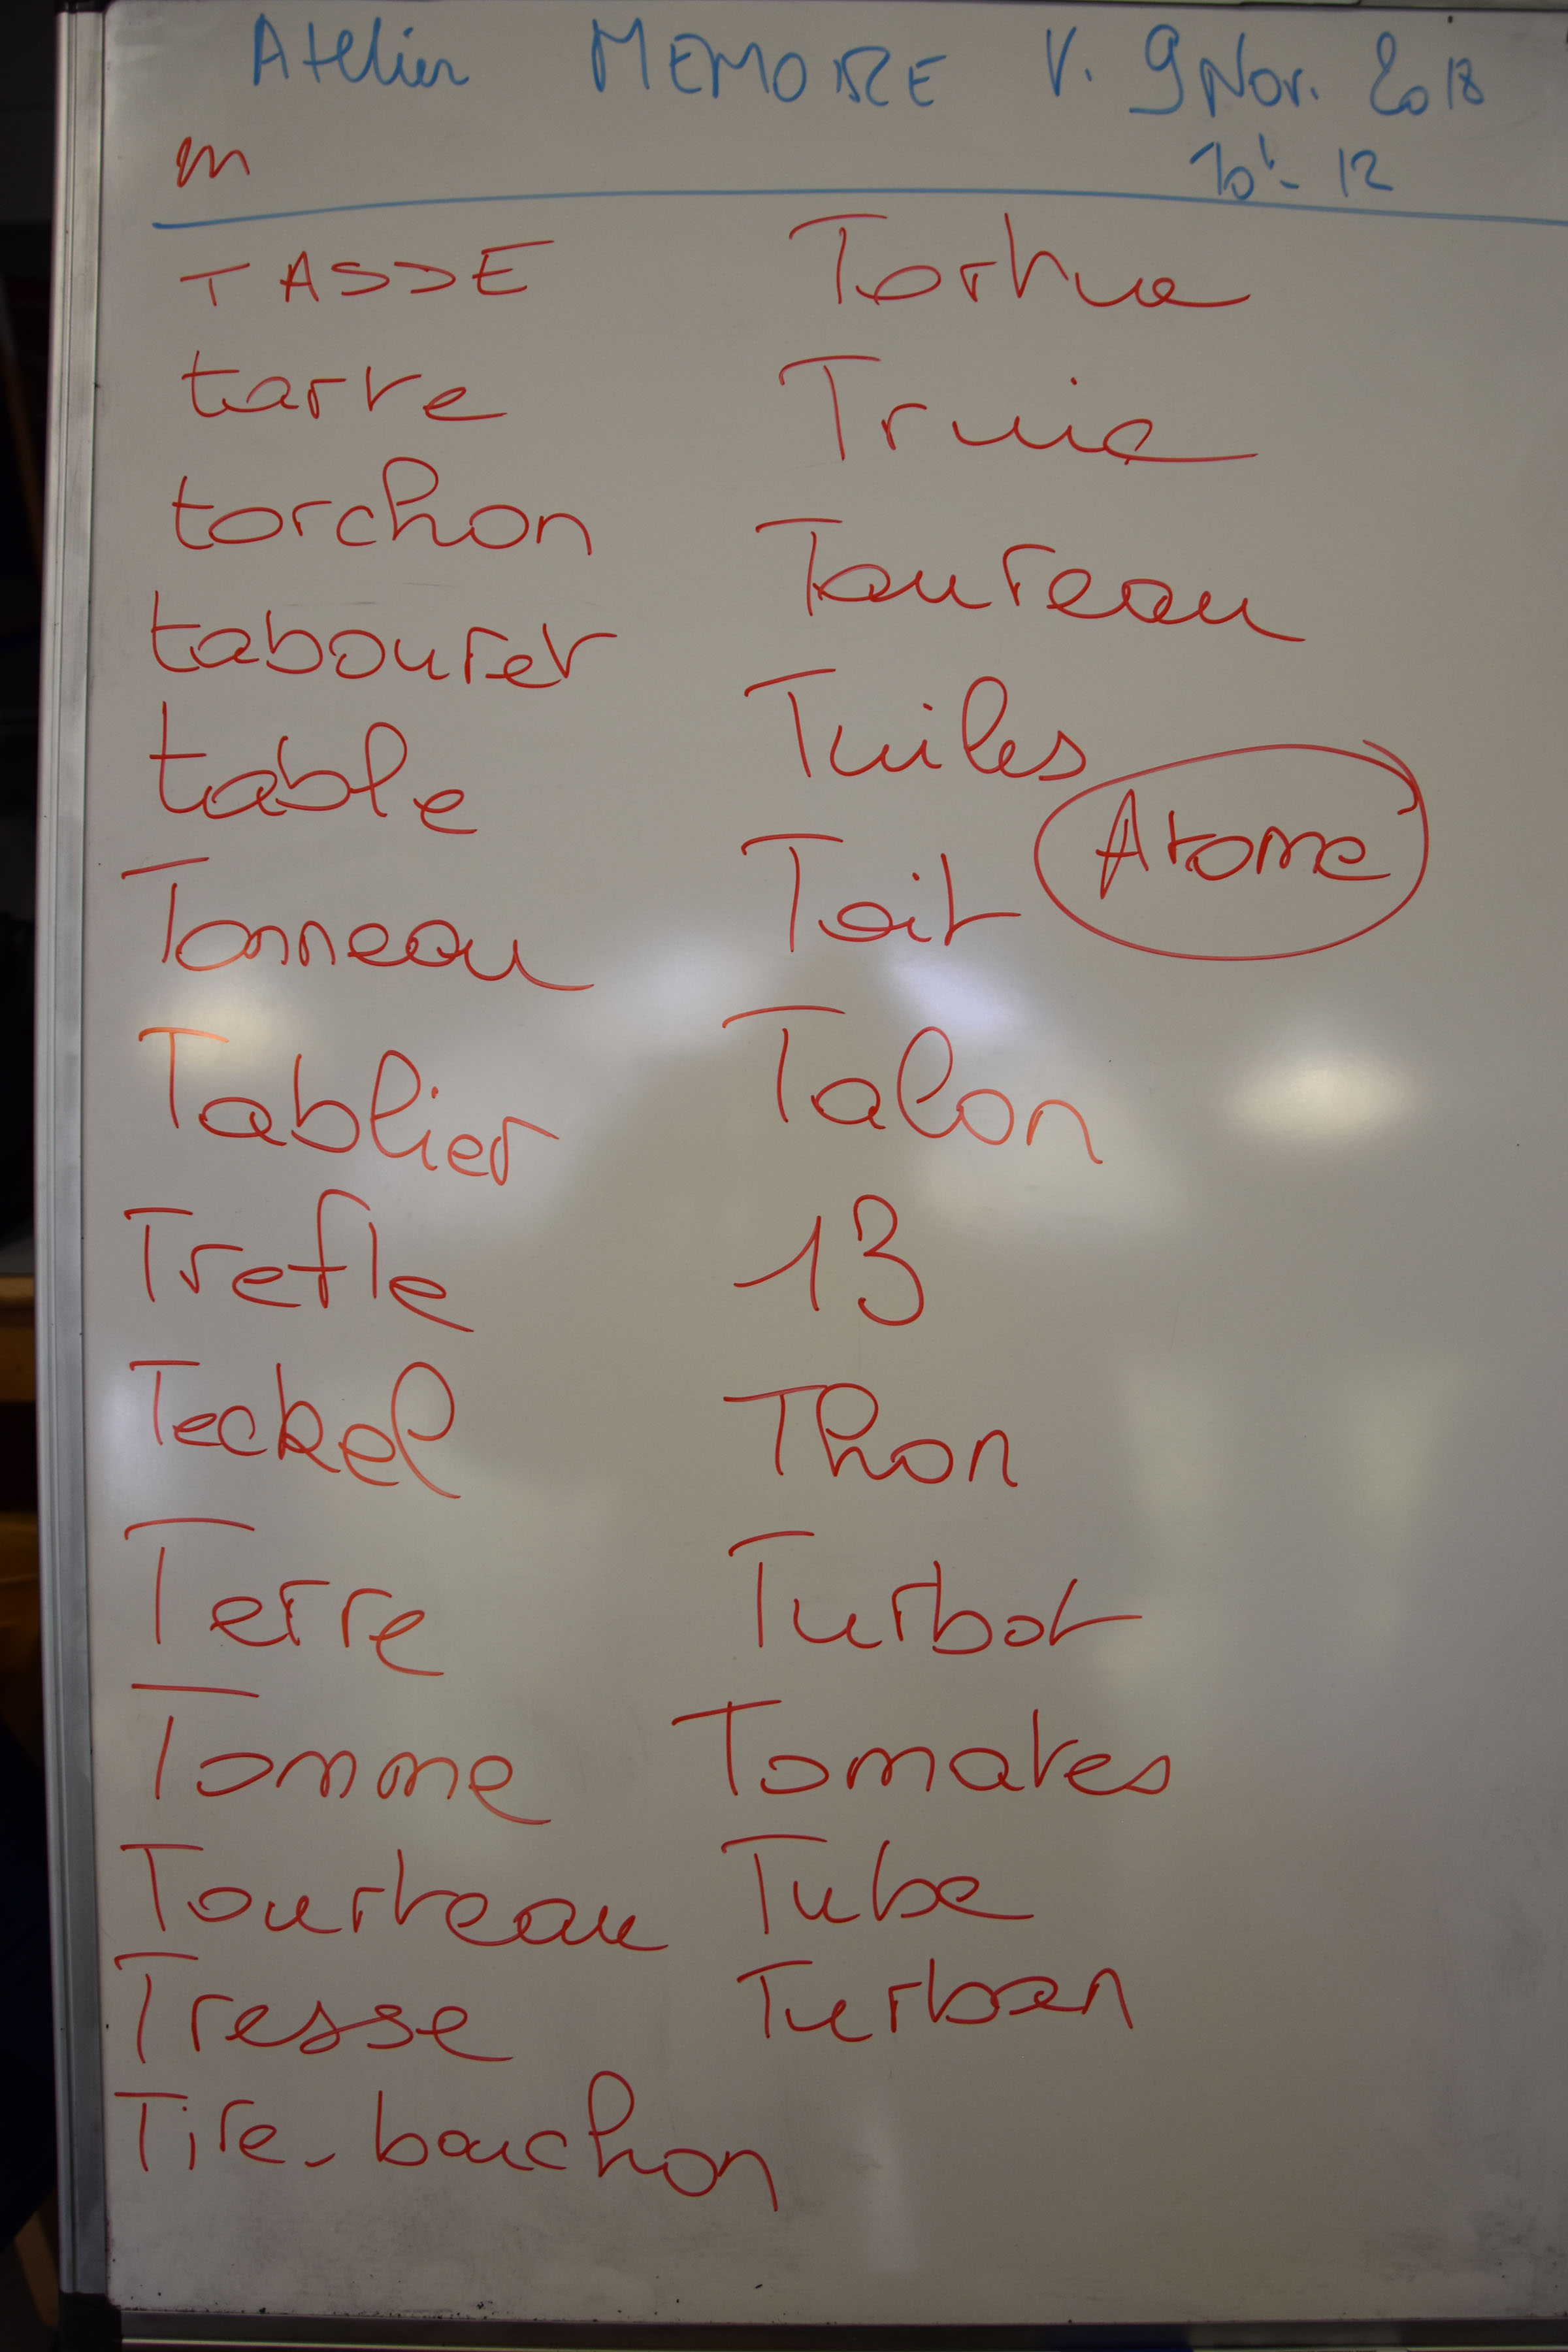 Atelier MEMOIRE V. 9 Nov. 2018
10h - 12
m
TASSE
tarte
torchon
tabouret
table
Tonneau
Tablier
Trefle
Teckel
Terre
Tomme
Tourteau
Tresse
Tire-bouchon
Tortue
Truie
Taureau
Tuiles
Atome
Toit
Talon
13
Thon
Turbot
Tomates
Tube
Turban